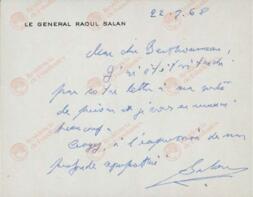 22.7.68
LE GENERAL RAOUL SALAN
Mon cher
J'ai été très touché
par votre lettre à ma sortie
de prison et je vous en remercie
beaucoup.
Croyez, à l'expression de ma
profonde sympathie
Salan